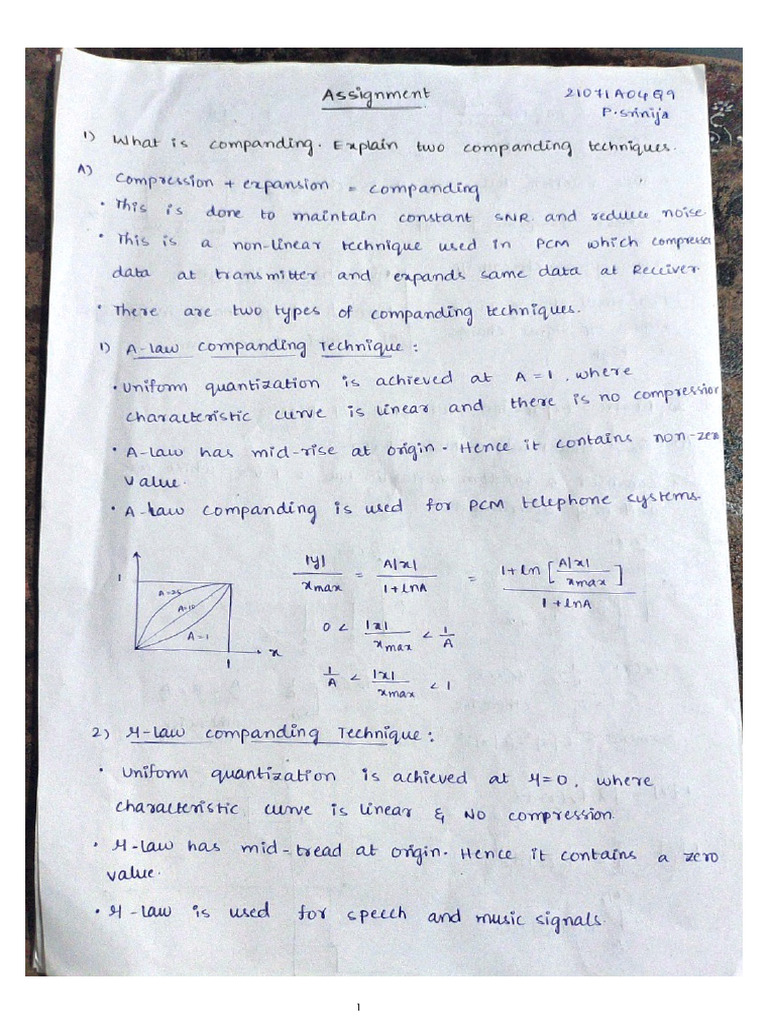 Assignment
21071A04Q9
P.Srinija
1) What is companding. Explain two companding techniques.
A) Compression + expansion = companding
• This is done to maintain constant SNR and reduce noise.
• This is a non-linear technique used in PCM which compresses
data at transmitter and expands same data at Receiver.
• There are two types of companding techniques.
1) A-law companding Technique :
• Uniform quantization is achieved at A = 1, where
characteristic curve is linear and there is no compression
• A-law has mid-rise at origin. Hence it contains non-zero
value.
• A-law companding is used for PCM telephone systems.
|y| / xmax = A|x| / 1+lnA = 1+ln [A|x| / xmax] / 1+lnA
0 < |x| / xmax < 1/A
1/A < |x| / xmax < 1
1
A=25
A=10
A=1
1
x
2) μ-law companding Technique :
• Uniform quantization is achieved at μ=0, where
characteristic curve is linear & NO compression.
• μ-law has mid-tread at origin. Hence it contains a zero
value.
• μ-law is used for speech and music signals.
1